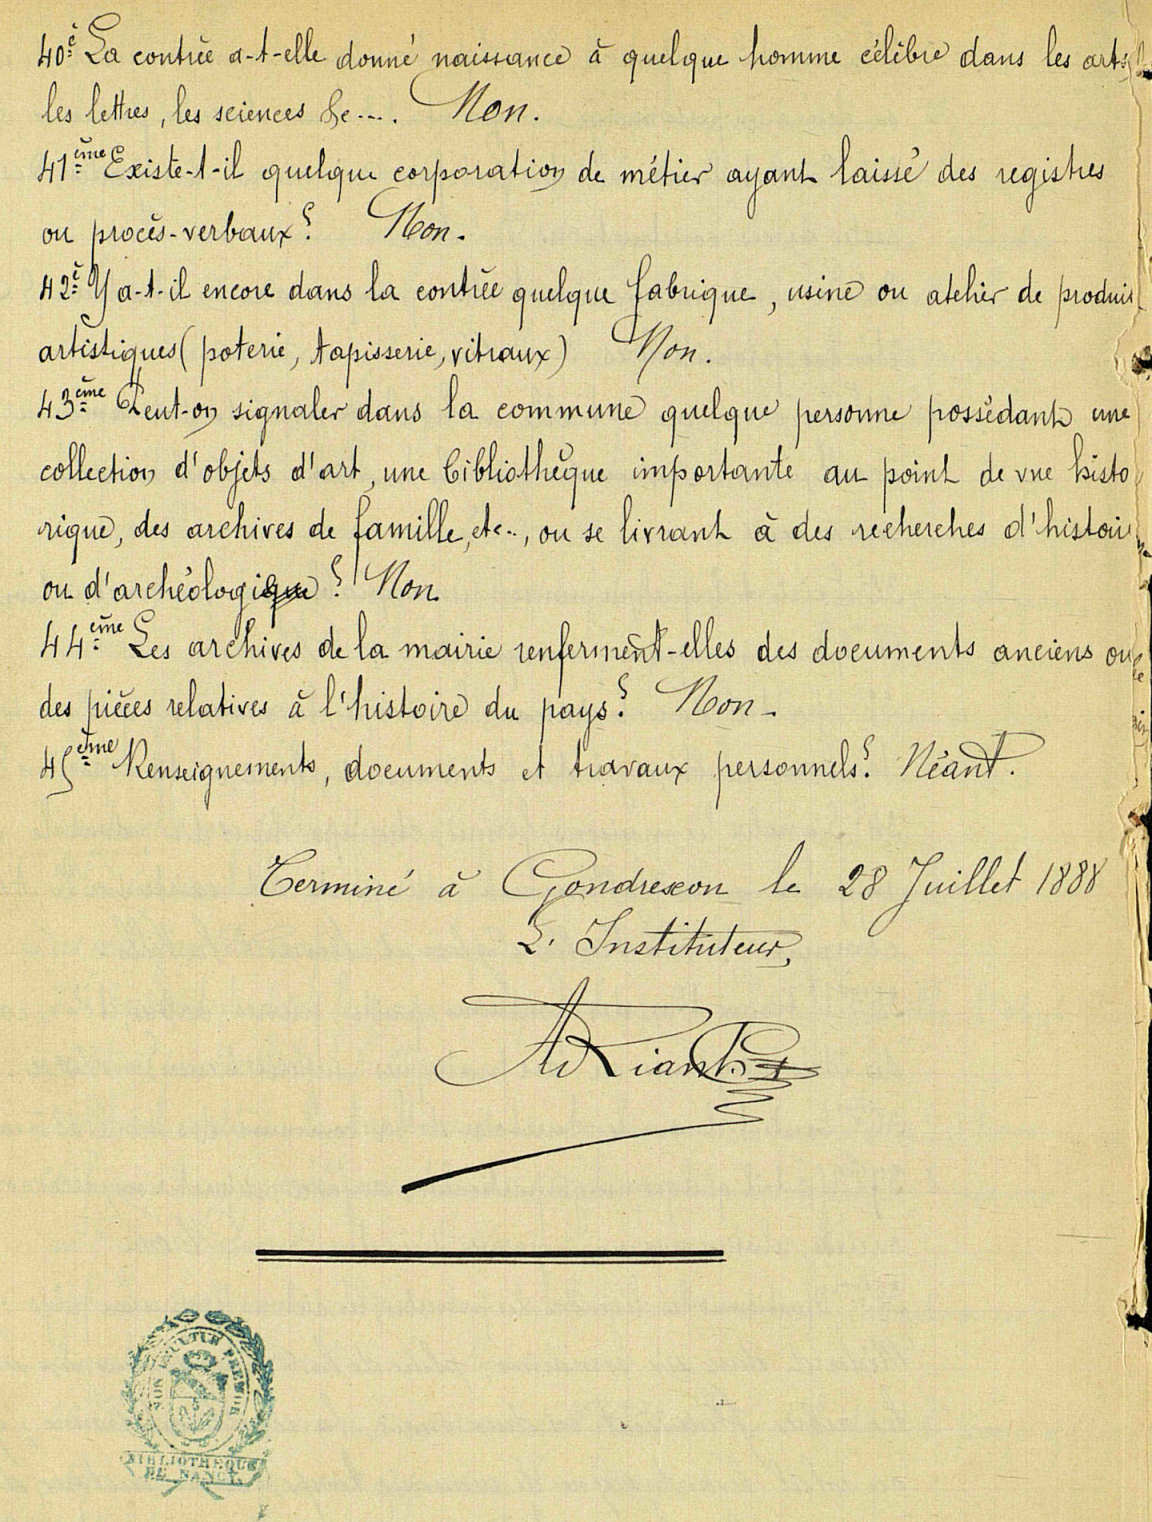 40e La contrée a-t-elle donné naissance à quelque homme célèbre dans les arts,
les lettres, les sciences &c.... Non.
41ème Existe-t-il quelque corporation de métier ayant laissé des registres
ou procès-verbaux? Non.
42e Y a-t-il encore dans la contrée quelque fabrique, usine ou atelier de produit
artistiques (poterie, tapisserie, vitraux) Non.
43ème Peut-on signaler dans la commune quelque personne possédant une
collection d'objets d'art, une bibliothèque importante au point de vue histo
rique, des archives de famille, etc.., ou se livrant à des recherches d'histoire
ou d'archéologique? Non
44ème Les archives de la mairie renferment-elles des documents anciens ou
des pièces relatives à l'histoire du pays? Non.
45ème Renseignements, documents et travaux personnels? Néant.
Terminé à Gondrexon le 28 Juillet 1888
L'Instituteur,
NON INULTUS PREMOR
BIBLIOTHEQUE
DE NANCY.